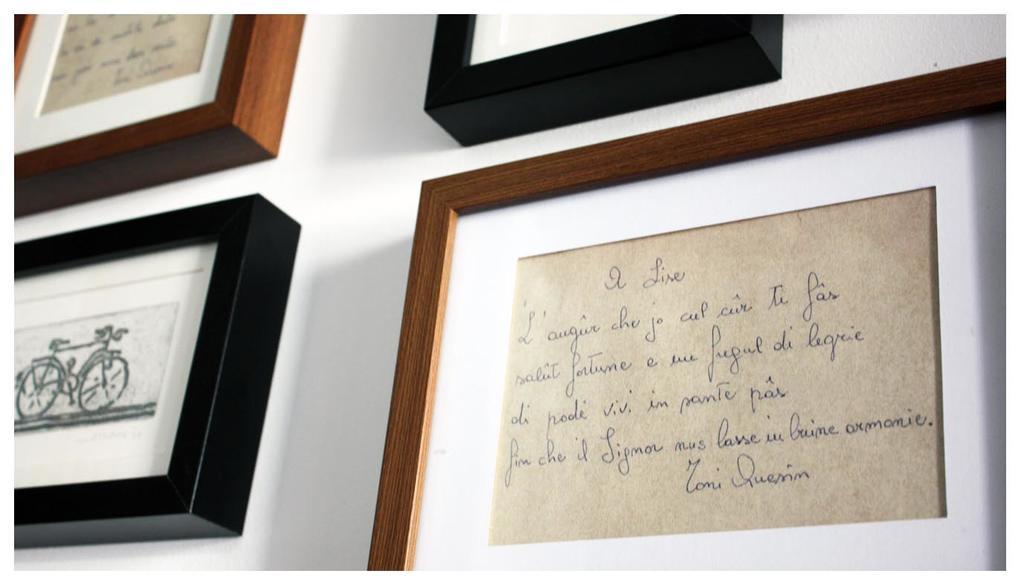 A Lise
L'augûr che jo cul cûr ti fâs
salût fortune e un fregul di legrie
di podê vivi in sante pâs
fin che il Signor nus lasse in buine armonie.
Toni Quesin